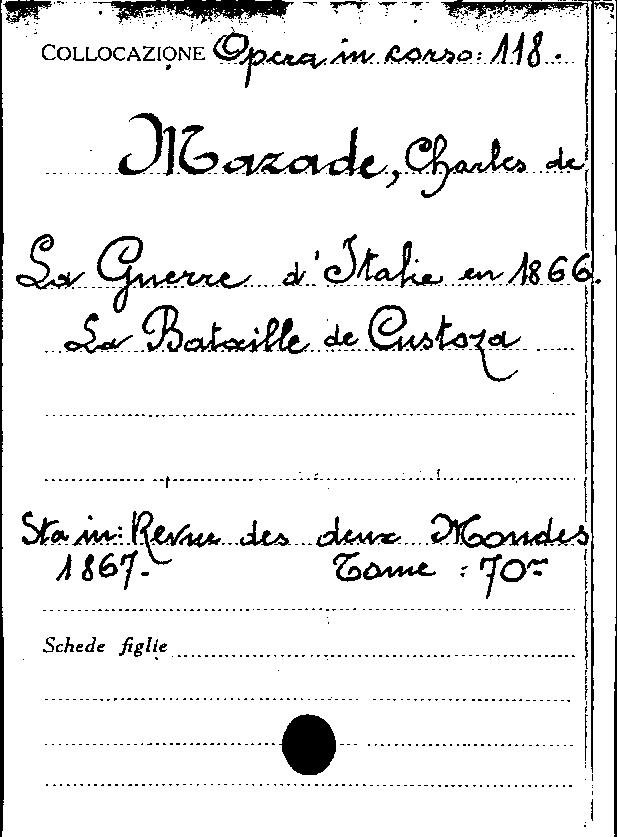 COLLOCAZIONE Opera in corso: 118.
Mazade, Charles de
La Guerre d'Italie en 1866.
La Bataille de Custoza
Sta in: Revue des deux Mondes
1867. Tome : 70=
Schede figlie